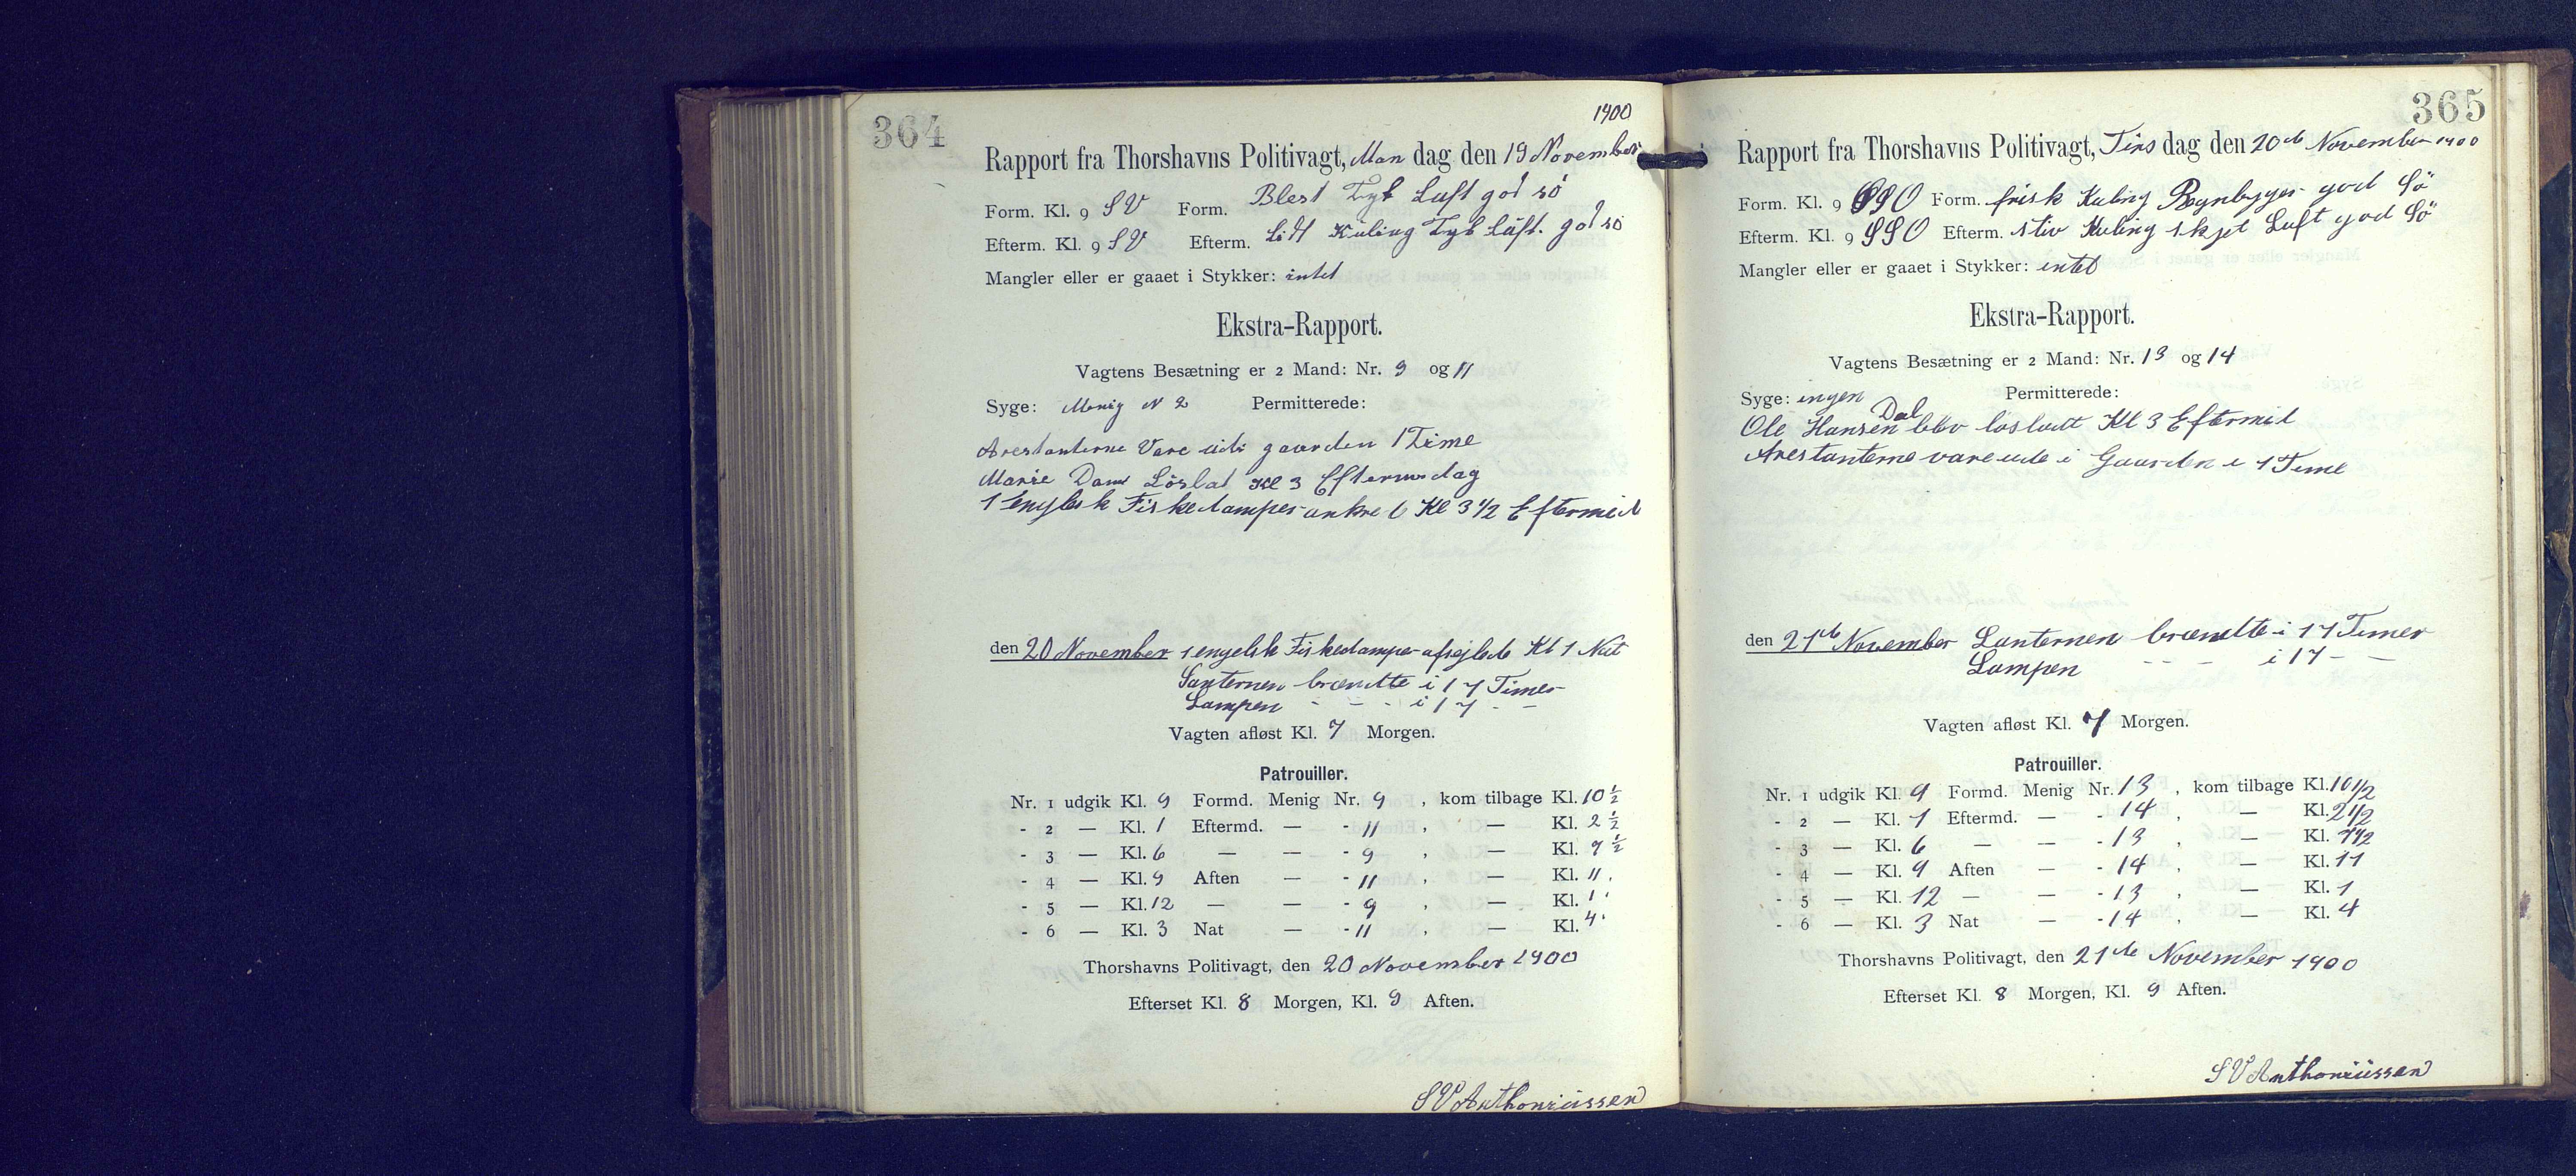 364
1900
Rapport fra Thorshavns Politivagt, Man dag den 19 November
Form. Kl. 9 SV Form. Blest Tyk Luft god sö
Efterm. Kl. 9 SV Efterm. Lidt Kuling Tyk Luft. god sö
Mangler eller er gaaet i Stykker: intet
Ekstra-Rapport.
Vagtens Besætning er 2 Mand: Nr. 9 og 11
Syge: Menig N 2 Permitterede:
Arestanterne Vare udi gaarden 1 Time
Marie Dam Löslat Kl 3 Eftermidag
1 engelsk Fiskedamper ankret Kl 3 1/2 Eftermid
den 20 November 1 engelsk Fiskedamper afsejlede Kl 1 Nat
Lanternen brændte i 17 Timer
Lampen - - - i 17 - -
Vagten afløst Kl. 7 Morgen.
Patrouiller.
Nr. 1 udgik Kl. 9 Formd. Menig Nr. 9 , kom tilbage Kl. 10 1/2
- 2 — Kl. 1 Eftermd. — - 11 , — Kl. 2 1/2
- 3 — Kl. 6 — — - 9 , — Kl. 7 1/2
- 4 — Kl. 9 Aften — - 11 , — Kl. 11.
- 5 — Kl. 12 — — - 9 , — Kl. 1.
- 6 — Kl. 3 Nat — - 11 , — Kl. 4.
Thorshavns Politivagt, den 20 November 1900
Efterset Kl. 8 Morgen, Kl. 9 Aften.
SV Anthoniussen
365
Rapport fra Thorshavns Politivagt, Tirs dag den 20de November 1900
Form. Kl. 9 SSO Form. frisk Kuling Regnbyger god Sö
Efterm. Kl. 9 SSO Efterm. stiv Kuling skyet Luft god Sö
Mangler eller er gaaet i Stykker: intet
Ekstra-Rapport.
Vagtens Besætning er 2 Mand: Nr. 13 og 14
Syge: ingen Permitterede:
Dal
Ole Hansen blev lösladt Kl 3 Eftermid
Arestanterne vare ude i Gaarden i 1 Time
den 21de November Lanternen brændte i 17 Timer
Lampen - - - i 17 - -
Vagten afløst Kl. 7 Morgen.
Patrouiller.
Nr. 1 udgik Kl. 9 Formd. Menig Nr. 13 , kom tilbage Kl. 10 1/2
- 2 — Kl. 1 Eftermd. — - 14 , — Kl. 2 1/2
- 3 — Kl. 6 — — - 13 , — Kl. 7 1/2
- 4 — Kl. 9 Aften — - 14 , — Kl. 11
- 5 — Kl. 12 — — - 13 , — Kl. 1
- 6 — Kl. 3 Nat — - 14 , — Kl. 4
Thorshavns Politivagt, den 21de November 1900
Efterset Kl. 8 Morgen, Kl. 9 Aften.
SV Anthoniussen